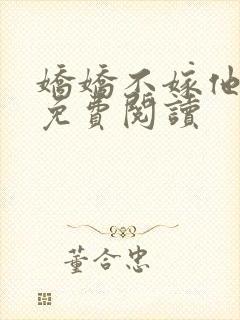 嬌嬌不嫁他
免費閱讀
董合忠